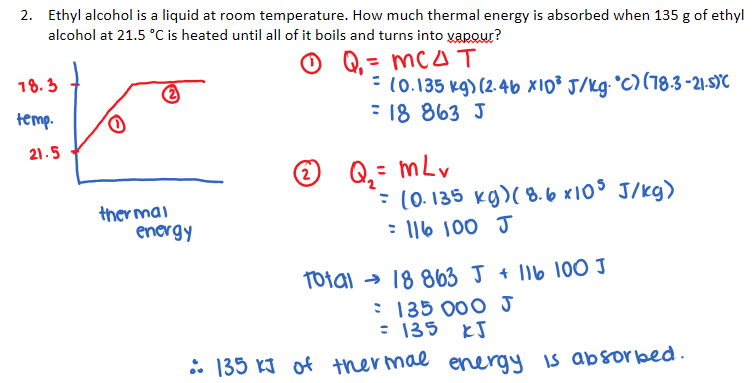 2. Ethyl alcohol is a liquid at room temperature. How much thermal energy is absorbed when 135 g of ethyl
alcohol at 21.5 °C is heated until all of it boils and turns into vapour?
① Q₁ = mcΔT
= (0.135 kg)(2.46 x10³ J/kg·°C)(78.3-21.5)°C
= 18 863 J
78.3
temp.
21.5
①
②
thermal
energy
② Q₂ = mLv
= (0.135 kg)(8.6 x10⁵ J/kg)
= 116 100 J
Total → 18 863 J + 116 100 J
= 135 000 J
= 135 kJ
∴ 135 kJ of thermal energy is absorbed.